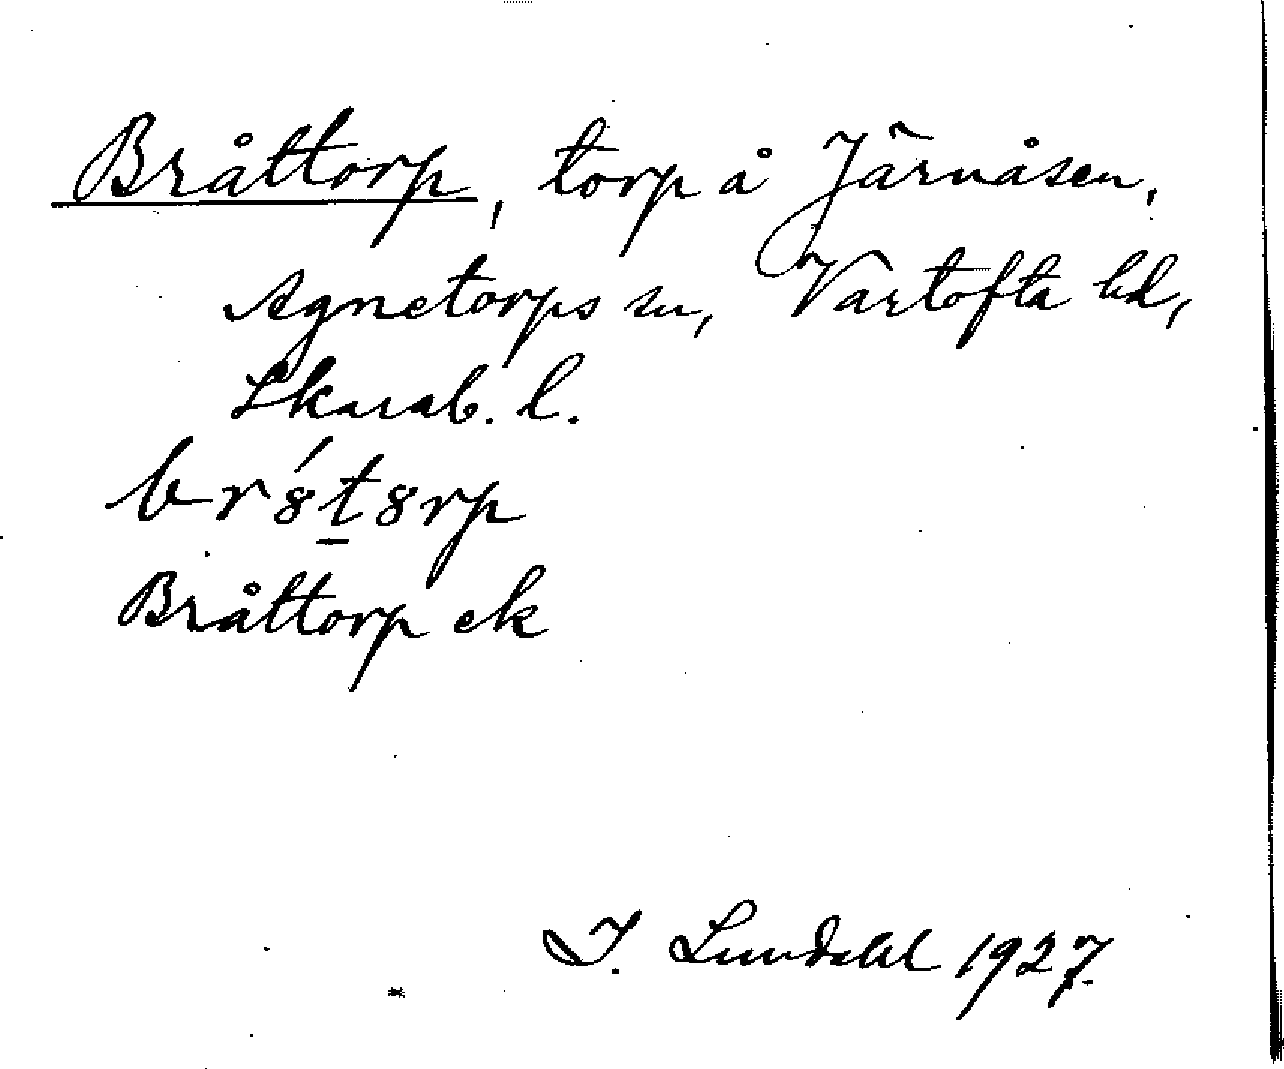 Bråttorp, torp å Järnåsen,
Agnetorps sn, Vartofta hd,
Skarab. l.
br8́t8rp
Bråttorp ek
I. Lundahl 1927.